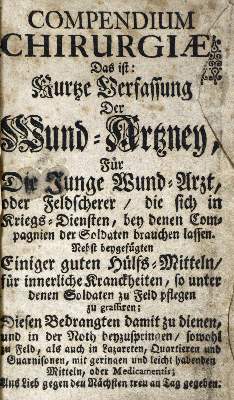 COMPENDIUM
CHIRURGIÆ
Das ist:
Kurtze Verfassung
Der
Wund-Artzney,
Für
Die Junge Wund-Artzt,
oder Feldscherer / die sich in
Kriegs-Diensten, bey denen Com-
pagnien der Soldaten brauchen lassen.
Nebst beygefügten
Einiger guten Hülffs-Mitteln /
für innerliche Kranckheiten, so unter
denen Soldaten zu Feld pflegen
zu grassiren;
Diesen Bedrangten damit zu dienen,
und in der Noth beyzuspringen / sowohl
zu Feld, als auch in Lazareten, Quartieren und
Guarnisonen, mit geringen und leicht habenden
Mitteln, oder Medicamentis;
Aus Lieb gegen den Nächsten treu an Tag gegeben.